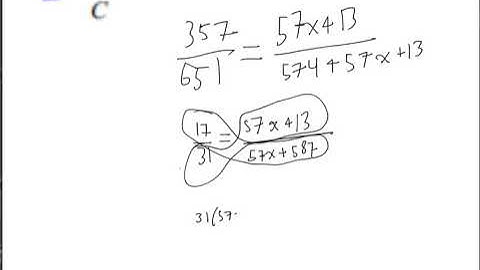 C
357/651 = 57x+13/574+57x+13
17/31 = 57x+13/57x+587
31(57